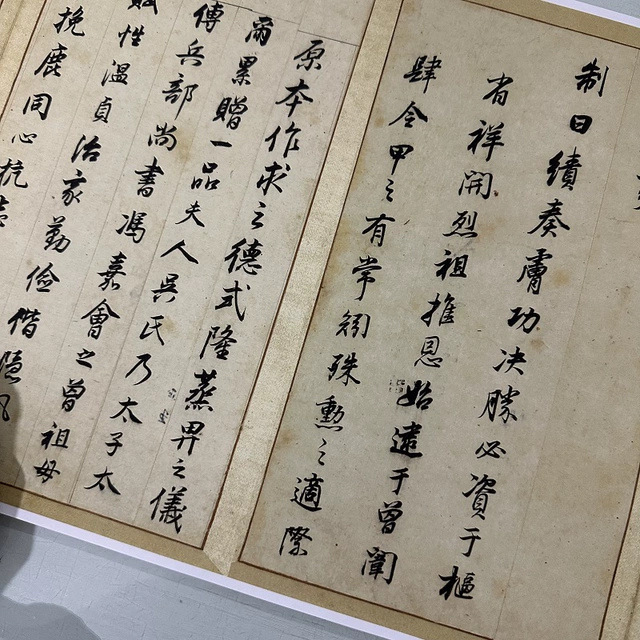 制曰績奏膚功决勝必資于樞
省祥開烈祖推恩始遠于曾闈
肆令甲之有常矧殊勲之適際
原本作求之德式隆蒸畀之儀
爾累贈一品夫人吳氏乃太子太
傅兵部尚書馮嘉會之曾祖母
賦性溫貞治家勤儉偕隱
挽鹿同心抗